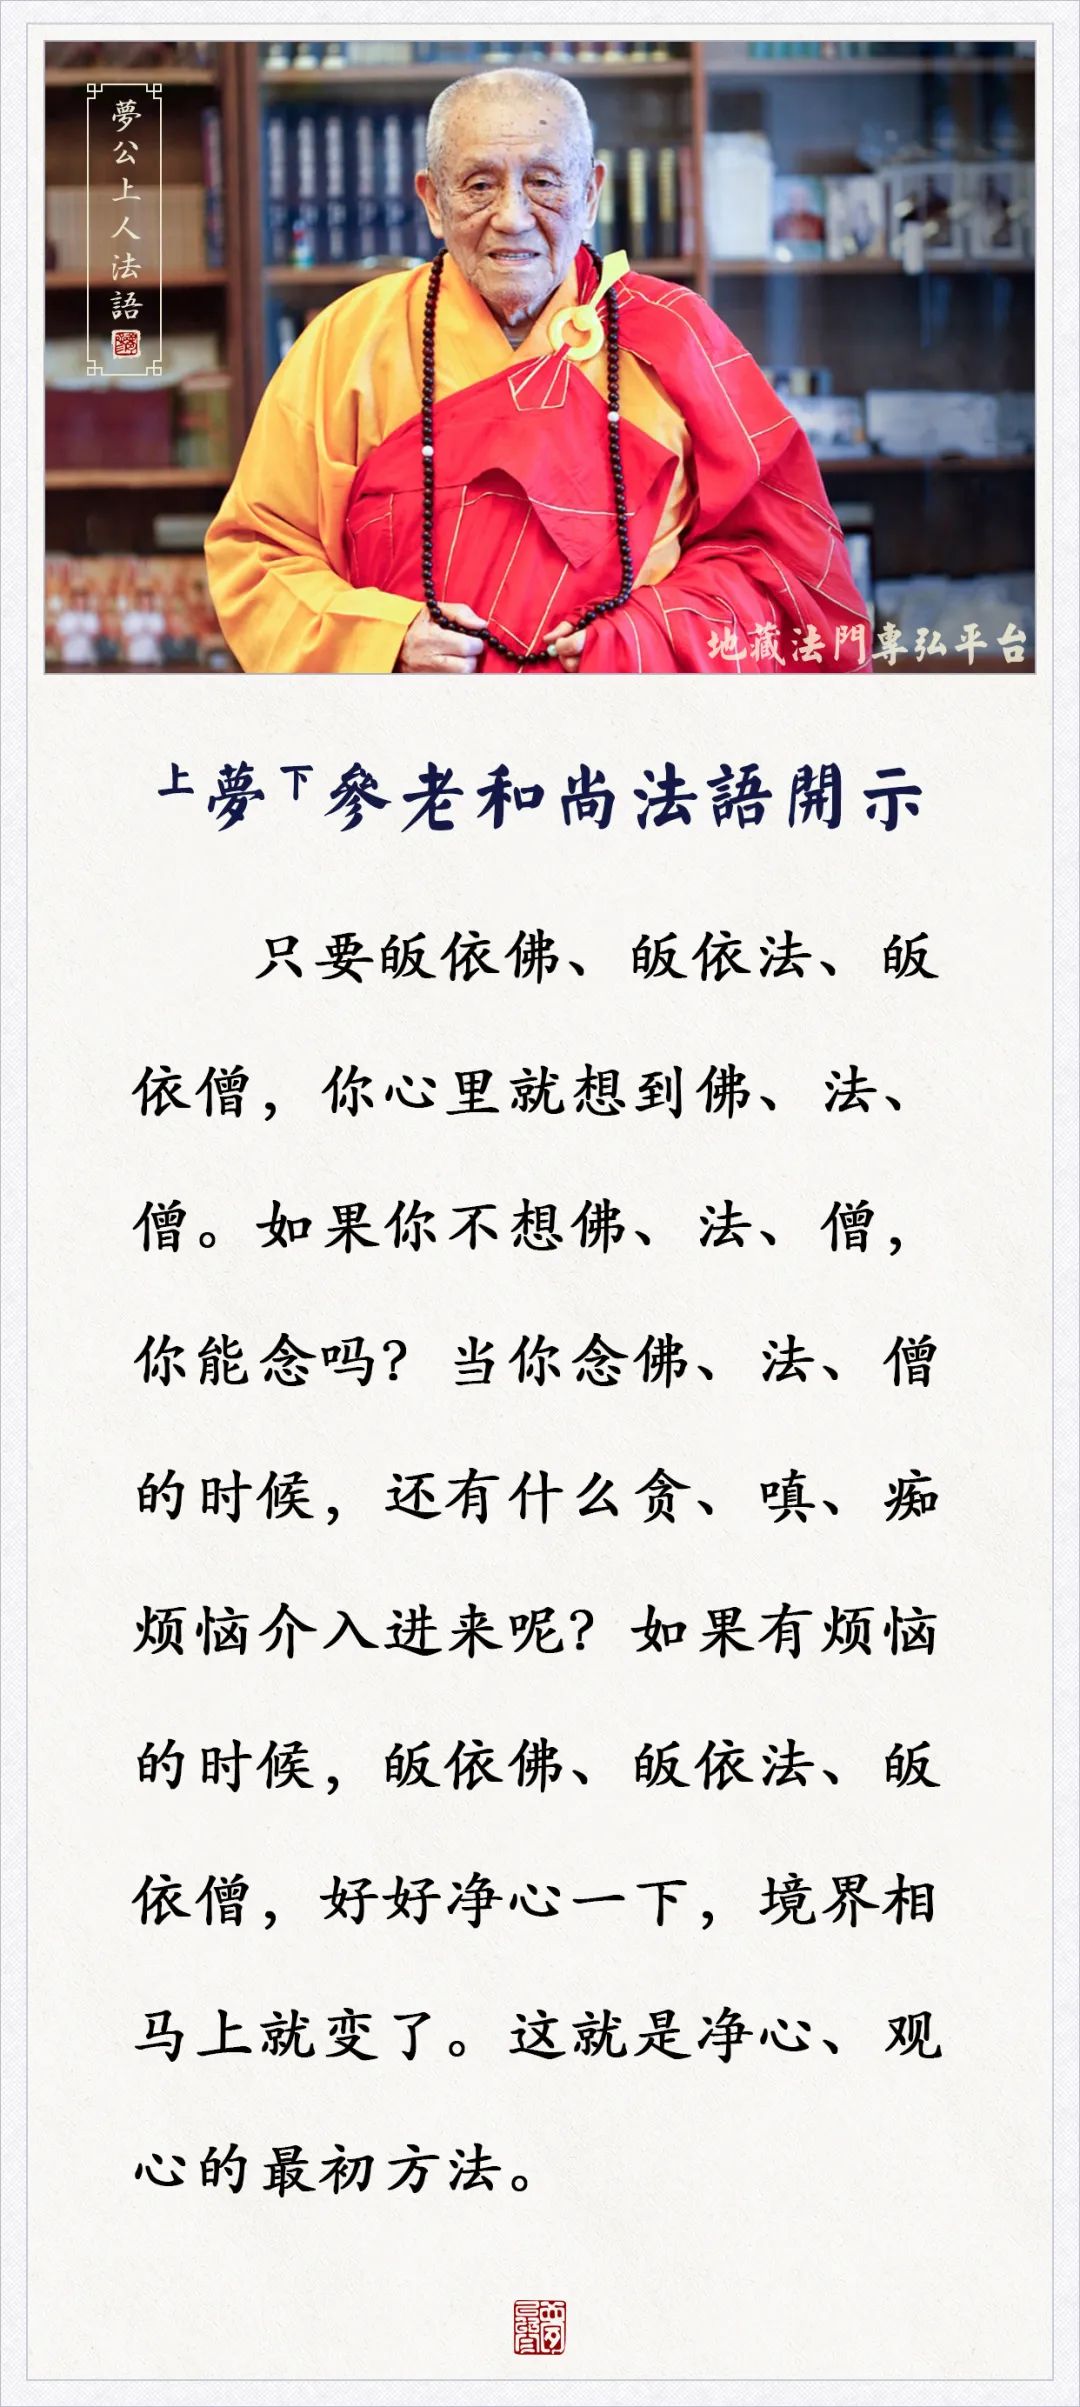 夢公上人法語
地藏法門專弘平台
上夢下參老和尚法語開示
只要皈依佛、皈依法、皈
依僧，你心里就想到佛、法、
僧。如果你不想佛、法、僧，
你能念吗？当你念佛、法、僧
的时候，还有什么贪、嗔、痴
烦恼介入进来呢？如果有烦恼
的时候，皈依佛、皈依法、皈
依僧，好好净心一下，境界相
马上就变了。这就是净心、观
心的最初方法。